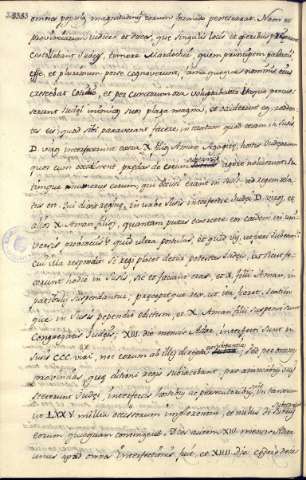 omnes populos magnitudinis eorum formido penetrarat. Nam et
provinciarum judices et duces, qui singulis locis et operibus
extollebant Judeos, timore Mardochei: quem principem palatii
esse et plurimum posse cognoverant, fama quoque nominis eius
crescebat cotidie, et per cunctorum ora volitabat. Itaque percus-
serunt Judei inimicos suos plaga magna, et occiderunt eos, redden-
tes eis quod sibi paraverant facere, in tantum quod etiam in Susis
D. viros interficerent extra X filios Aman Agagitis hostis Judeorum
quos cum occidissent predas de eorum tangere noluerunt. Sta-
timque numerus eorum, qui occisi erant in Susis ad regem rela-
tus est. Qui dixit regine, in urbe Susis interfecere Judei D. viros, et
alios X Aman filios, quantam putas exercere eos cedem in uni-
versis provinciis? quid ultra postulas, et quid vis, ut fieri
cui illa respondit si regi placet detur potestas Judeis, ut sicut fe-
cerunt hodie in Susis, sic et faciant cras, et X filii Aman in
patibulis suspendantur, precepitque rex, ut ita fieret. Statim-
que in Susis pependit edictum, et X Aman filii suspensi sunt
Congregatis Judeis, XIIII. die mensis Adar, interfecti sunt in
Susis CCC viri, nec eorum ab illis direpta substantia sed per omnes
provincias, que ditioni regis subiacebant, pro animabus suis
steterunt Judei, interfectis hostibus ac persecutoribus, in tantum
ut LXXV millia occisorum implerentur, et nullus de
eorum quicquam contingeret. Dies autem XIII mensis Adar
unus apud omnes interfectionis fuit, et XIIII die cedere desie-